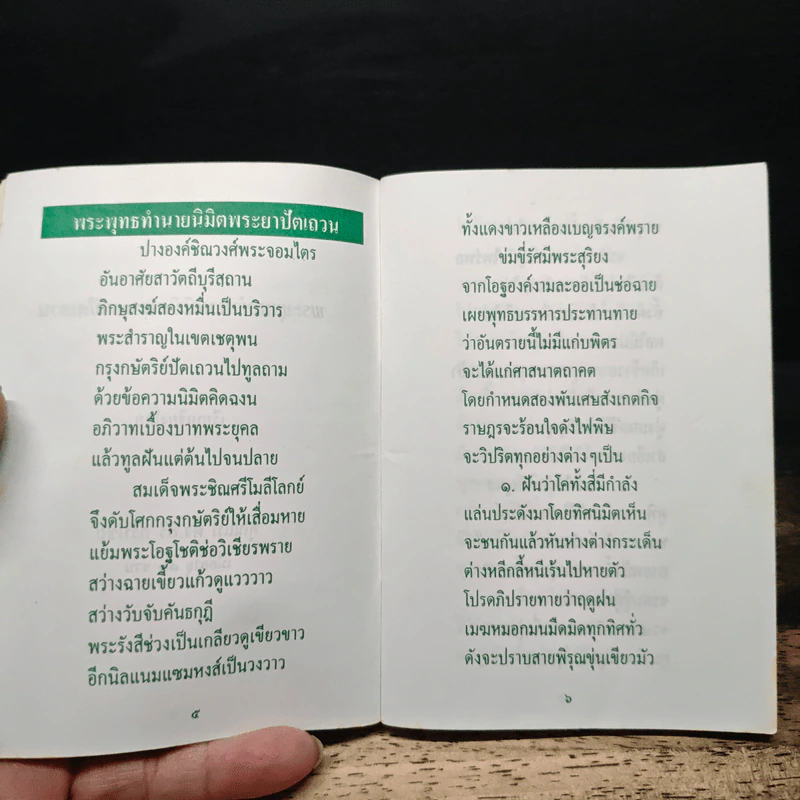 พระพุทธทำนายนิมิตพระยาปัตเถวน
ปางองค์ชิณวงศ์พระจอมไตร
อันอาศัยสาวัตถีบุรีสถาน
ภิกษุสงฆ์สองหมื่นเป็นบริวาร
พระสำราญในเขตเชตุพน
กรุงกษัตริย์ปัตเถวนไปทูลถาม
ด้วยข้อความนิมิตคิดฉงน
อภิวาทเบื้องบาทพระยุคล
แล้วทูลฝันแต่ต้นไปจนปลาย
สมเด็จพระชิณศรีโมลีโลกย์
จึงดับโศกกรุงกษัตริย์ให้เสื่อมหาย
แย้มพระโอฐโชติช่อวิเชียรพราย
สว่างฉายเขี้ยวแก้วดูแวววาว
สว่างวับจับคันธกุฎี
พระรังสีช่วงเป็นเกลียวดูเขียวขาว
อีกนิลแนมแซมหงส์เป็นวงวาว
๕
ทั้งแดงขาวเหลืองเบญจรงค์พราย
ข่มขี่รัศมีพระสุริยง
จากโอฐองค์งามละออเป็นช่อฉาย
เผยพุทธบรรหารประทานทาย
ว่าอันตรายนี้ไม่มีแก่บพิตร
จะได้แก่ศาสนาตถาคต
โดยกำหนดสองพันเศษสังเกตกิจ
ราษฎรจะร้อนใจดังไฟพิษ
จะวิปริตทุกอย่างต่างๆเป็น
๑. ฝันว่าโคทั้งสี่มีกำลัง
แล่นประดังมาโดยทิศนิมิตเห็น
จะชนกันแล้วหันห่างต่างกระเด็น
ต่างหลีกลี้หนีเร้นไปหายตัว
โปรดภิปรายทายว่าฤดูฝน
เมฆหมอกมนมืดมิดทุกทิศทั่ว
ดังจะปราบสายพิรุณขุ่นเขียวมัว
๖